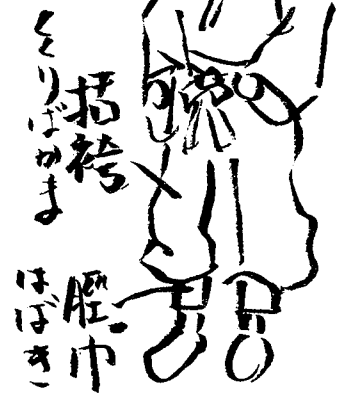 括袴
くりばかま
脛巾
はばき